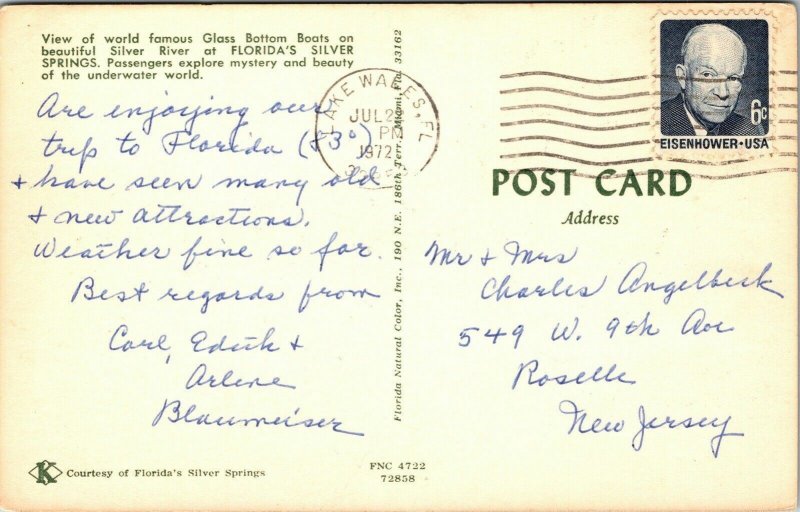 View of world famous Glass Bottom Boats on
beautiful Silver River at FLORIDA'S SILVER
SPRINGS. Passengers explore mystery and beauty
of the underwater world.
Are enjoying our
trip to Florida
+ have seen many old
+ new attractions.
Weather fine so far.
Best regards from
Carl, Edith +
Arlene
Blaumeiser
Courtesy of Florida's Silver Springs
Florida Natural Color, Inc., 190 N.E. 186th Terr., Miami, Fla. 33162
FNC 4722
72858
LAKE WALES, FL
JUL 2
PM
1972
6c
EISENHOWER·USA
POST CARD
Address
Mr + Mrs
Charles Angelbeck
549 W. 9th Ave
Roselle
New Jersey
K